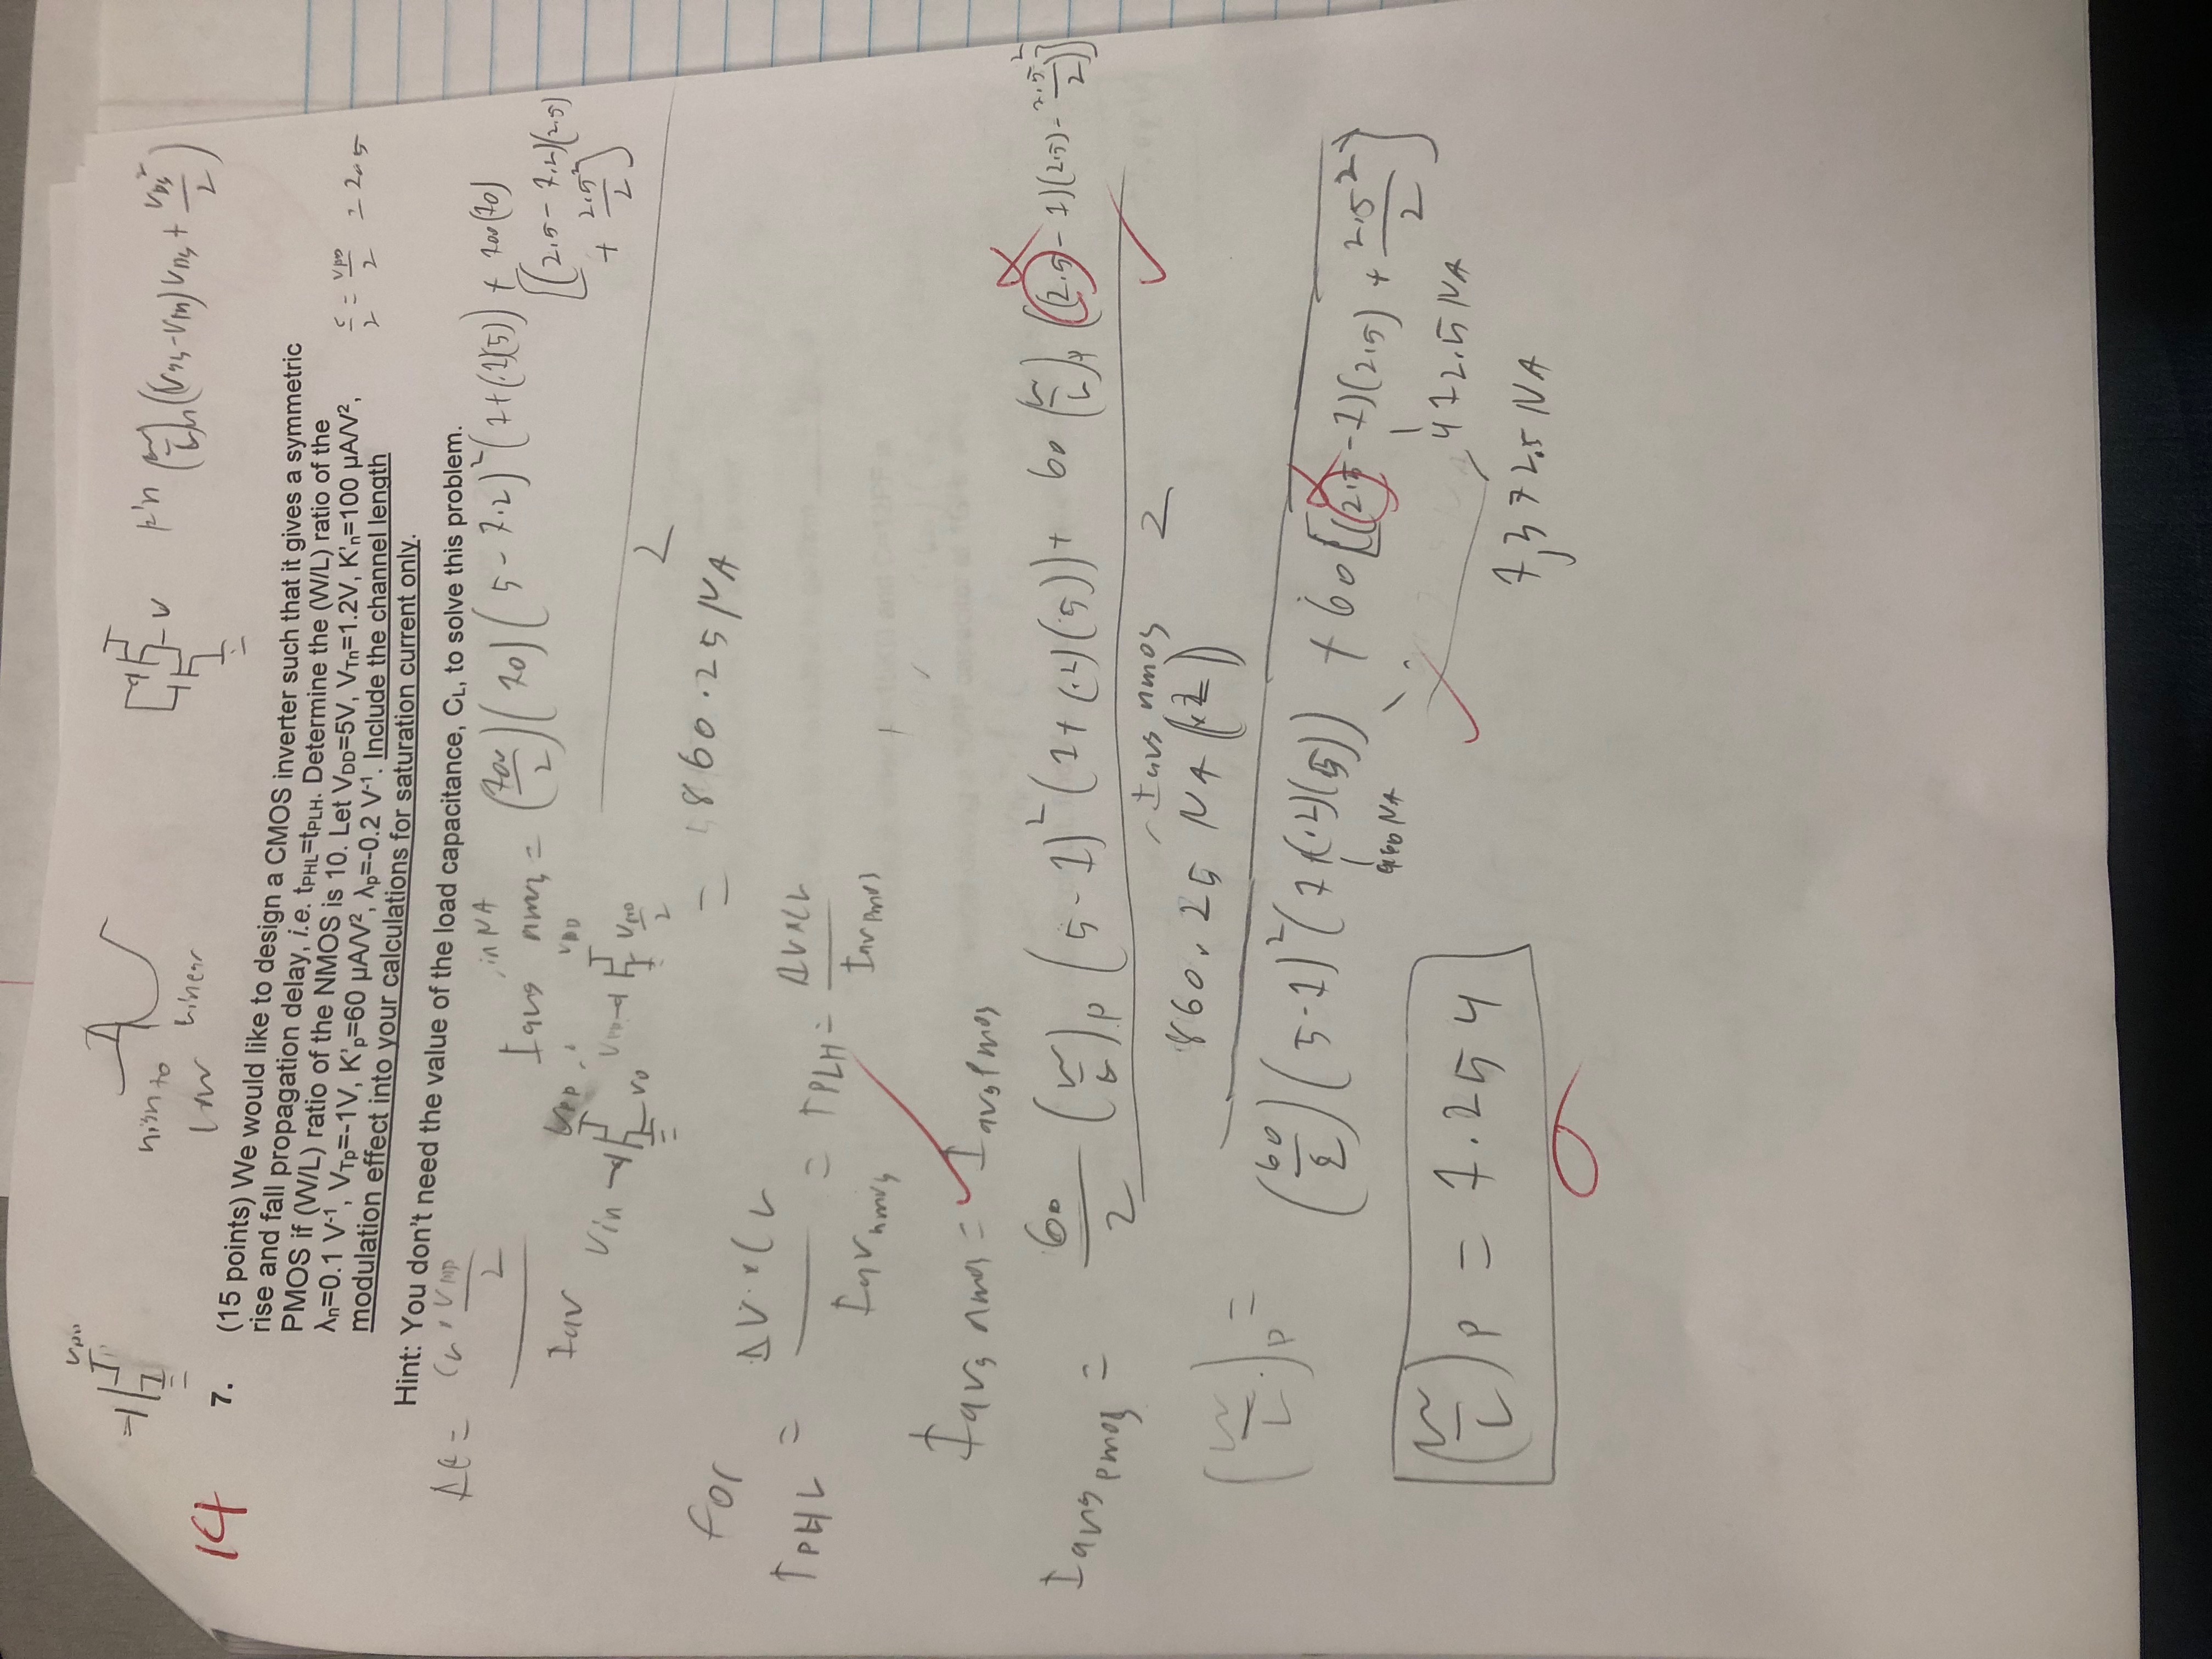 VDD
high to
low
linear
V
k'n (W/L)n ((Vgs-VTN) VDS + VDS²/2)
14
7. (15 points) We would like to design a CMOS inverter such that it gives a symmetric
rise and fall propagation delay, i.e. tPHL=tPLH. Determine the (W/L) ratio of the
PMOS if (W/L) ratio of the NMOS is 10. Let VDD=5V, VTn=1.2V, K'n=100 µA/V²,
λn=0.1 V-1, VTp=-1V, K'p=60 µA/V², λp=-0.2 V-1. Include the channel length
modulation effect into your calculations for saturation current only.
5/2 = VDD/2 = 2.5
Hint: You don't need the value of the load capacitance, CL, to solve this problem.
Δt = CL · VDD/2 / Iav
in µA
Iavg nmos = (100/2)(10)(5-1.2)²(1+(.1)(5)) + 100(10)
[(2.5-1.2)(2.5)
+ 2.5²/2]
2
Vin VDD Vo
VDD VDD VDD/2
= 860.25 µA
For
TPHL = ΔV × CL / Iav nmos = TPLH = ΔV × CL / Iav pmos
Iavg nmos = Iavg pmos
Iavg pmos = 60/2 (W/L)p (5-1)² (1+(.2)(5)) + 60 (W/L)p ((2.5-1)(2.5) - 2.5²/2)
2
Iavg nmos
(W/L)p = 860.25 µA (×2)
(60/2)(5-1)²(1+(.2)(5)) + 60[(2.5-1)(2.5) + 2.5²/2]
960 µA
412.5 µA
(W/L)p = 1.254
1,372.5 µA